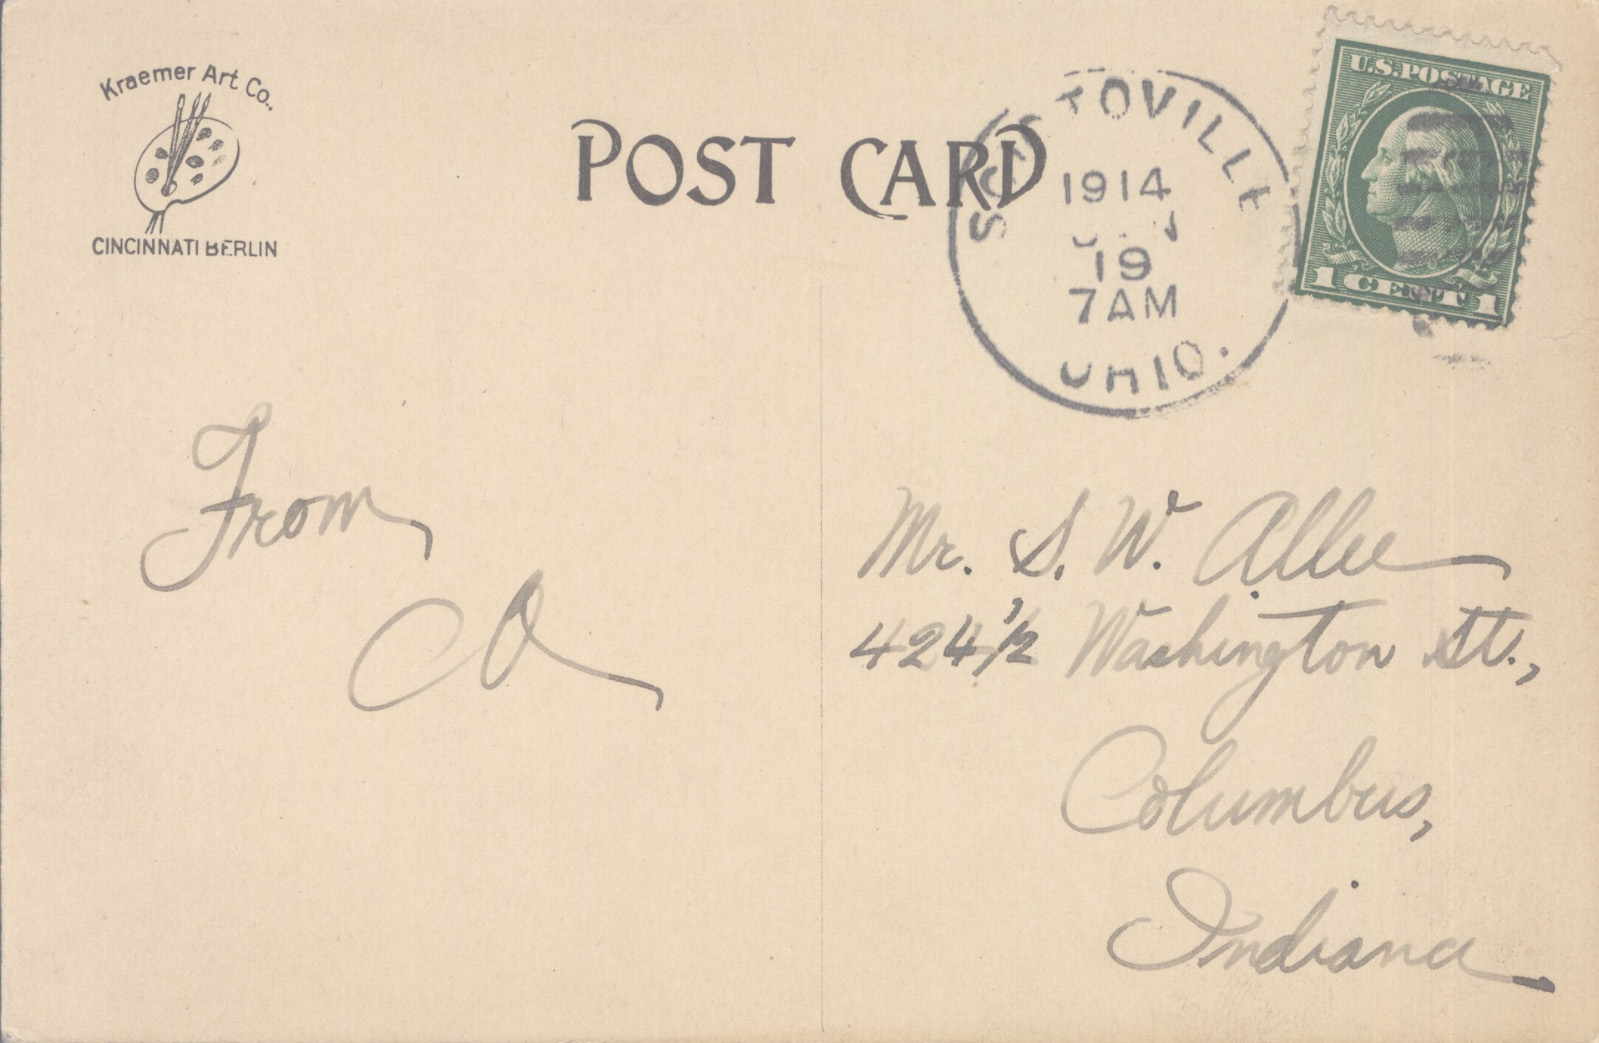 Kraemer Art Co.
CINCINNATI BERLIN
POST CARD
SCIOTOVILLE
1914
19
7AM
OHIO.
U.S. POSTAGE
1 CENT 1
From
Mr. S. W. Allee
424 1/2 Washington St.,
Columbus,
Indiana